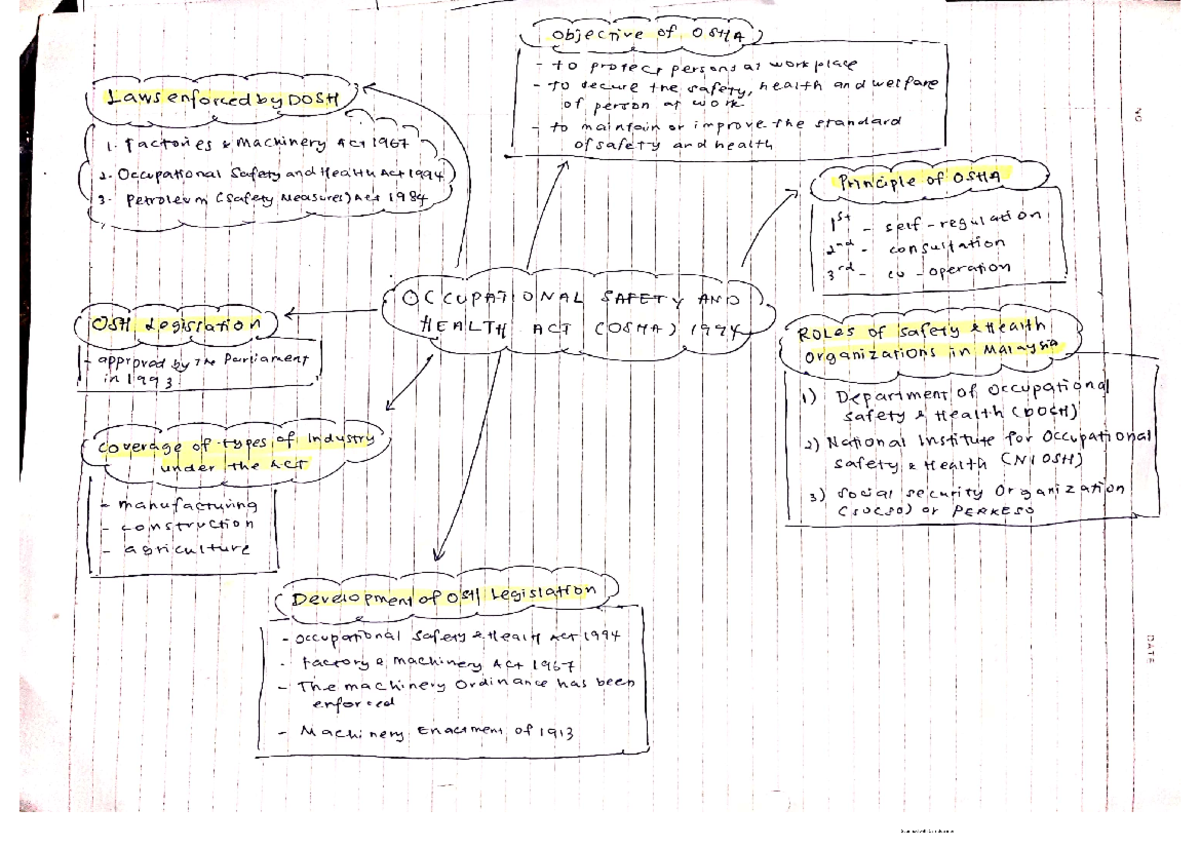 Objective of OSHA
- to protect persons at workplace
- to secure the safety, health and welfare
of person at work
- to maintain or improve the standard
of safety and health
Laws enforced by DOSH
1. Factories & Machinery Act 1967
2. Occupational Safety and Health Act 1994
3. Petroleum (Safety Measures) Act 1984
Principle of OSHA
1st - self-regulation
2nd - consultation
3rd - co-operation
OCCUPATIONAL SAFETY AND
HEALTH ACT (OSHA) 1994
OSH Legislation
- approved by The Parliament
in 1993
Roles of Safety & Health
Organizations in Malaysia
1) Department of Occupational
Safety & Health (DOSH)
2) National Institute for Occupational
Safety & Health (NIOSH)
3) Social Security Organization
(SOCSO) or PERKESO
Coverage of types of Industry
under the Act
- manufacturing
- construction
- agriculture
Development of OSH Legislation
- Occupational Safety & Health Act 1994
- Factory & machinery Act 1967
- The machinery Ordinance has been
enforced
- Machinery Enactment of 1913
NO
DATE